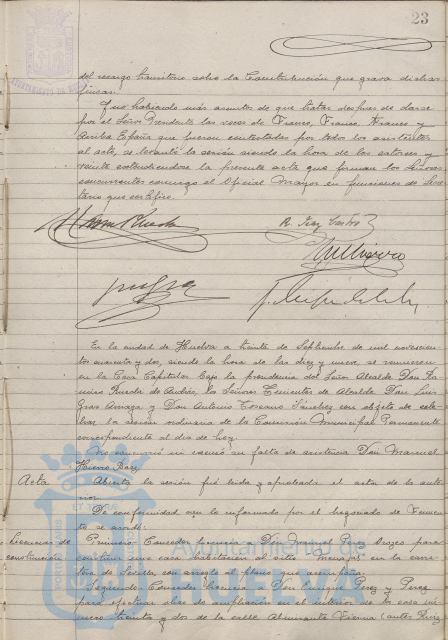 23
del recargo transitorio sobre la Contribución que grava dichas
fincas.
Y no habiendo más asuntos de que tratar después de darse
por el Señor Presidente las voces de Franco, Franco, Franco y
Arriba España que fueron contestadas por todos los asistentes
al acto, se levantó la sesión siendo la hora de las catorce y
veinte extendiéndose la presente acta que firman los Señores
concurrentes conmigo el Oficial Mayor en funciones de Secre
tario que certifico.
En la ciudad de Huelva a treinta de Septiembre de mil novecien
tos cuarenta y dos, siendo la hora de las diez y nueve, se reunieron
en la Casa Capitular bajo la presidencia del Señor Alcalde Don
Rueda de Andrés, los Señores Tenientes de Alcalde Don Luis
y Don Antonio Sánchez con objeto de cele
brar la sesión ordinaria de la Comisión Municipal Permanente
correspondiente al día de hoy.
No concurrió ni excusó su falta de asistencia Don Manuel
Hierro
Acta
Abierta la sesión fué leida y aprobada el acta de la ante
rior.
De conformidad con lo informado por el Negociado de Fomen
to se acordó:
Licencias de
construcción
Primero: Conceder licencia a Don Manuel para
construir una casa habitación al sitio en la carre
tera de Sevilla con arreglo al plano que acompaña.
Segundo: Conceder licencia a Don Enrique Perez y Perez
para efectuar obras de ampliación en el interior de la casa nú
mero treinta y dos de la calle Almirante
Ayuntamiento de
HUELVA